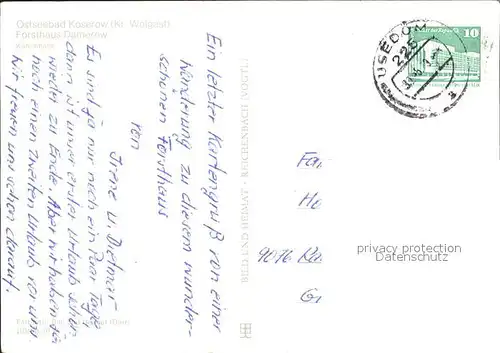 Ostseebad Koserow (Kr. Wolgast)
Forsthaus Damerow
Ein letzter Kartengruß von einer
Wanderung zu diesem wunder-
schönen Forsthaus
von
Irene u. Dietmar
Es sind ja nur noch ein paar Tage,
dann ist unser erster Urlaub schon
wieder zu Ende. Aber wir haben ja
noch einen zweiten Urlaub vor uns.
Wir freuen uns schon darauf.
BILD UND HEIMAT · REICHENBACH (VOGTL)
10
USEDOM
225
a
9076
privacy protection
Datenschutz